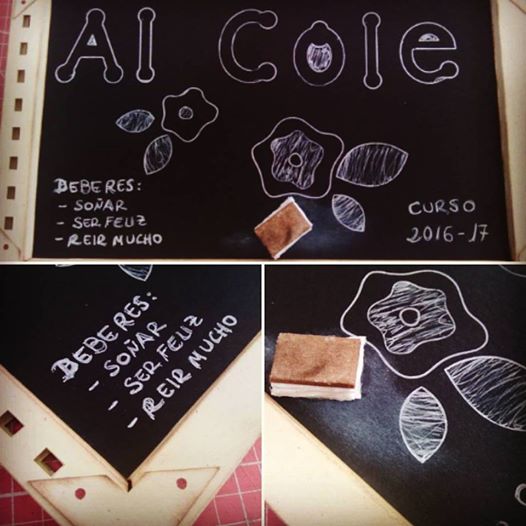 Al Cole
DEBERES:
- SOÑAR
- SER FELIZ
- REIR MUCHO
CURSO
2016-17
DEBERES:
- SOÑAR
- SER FELIZ
- REIR MUCHO